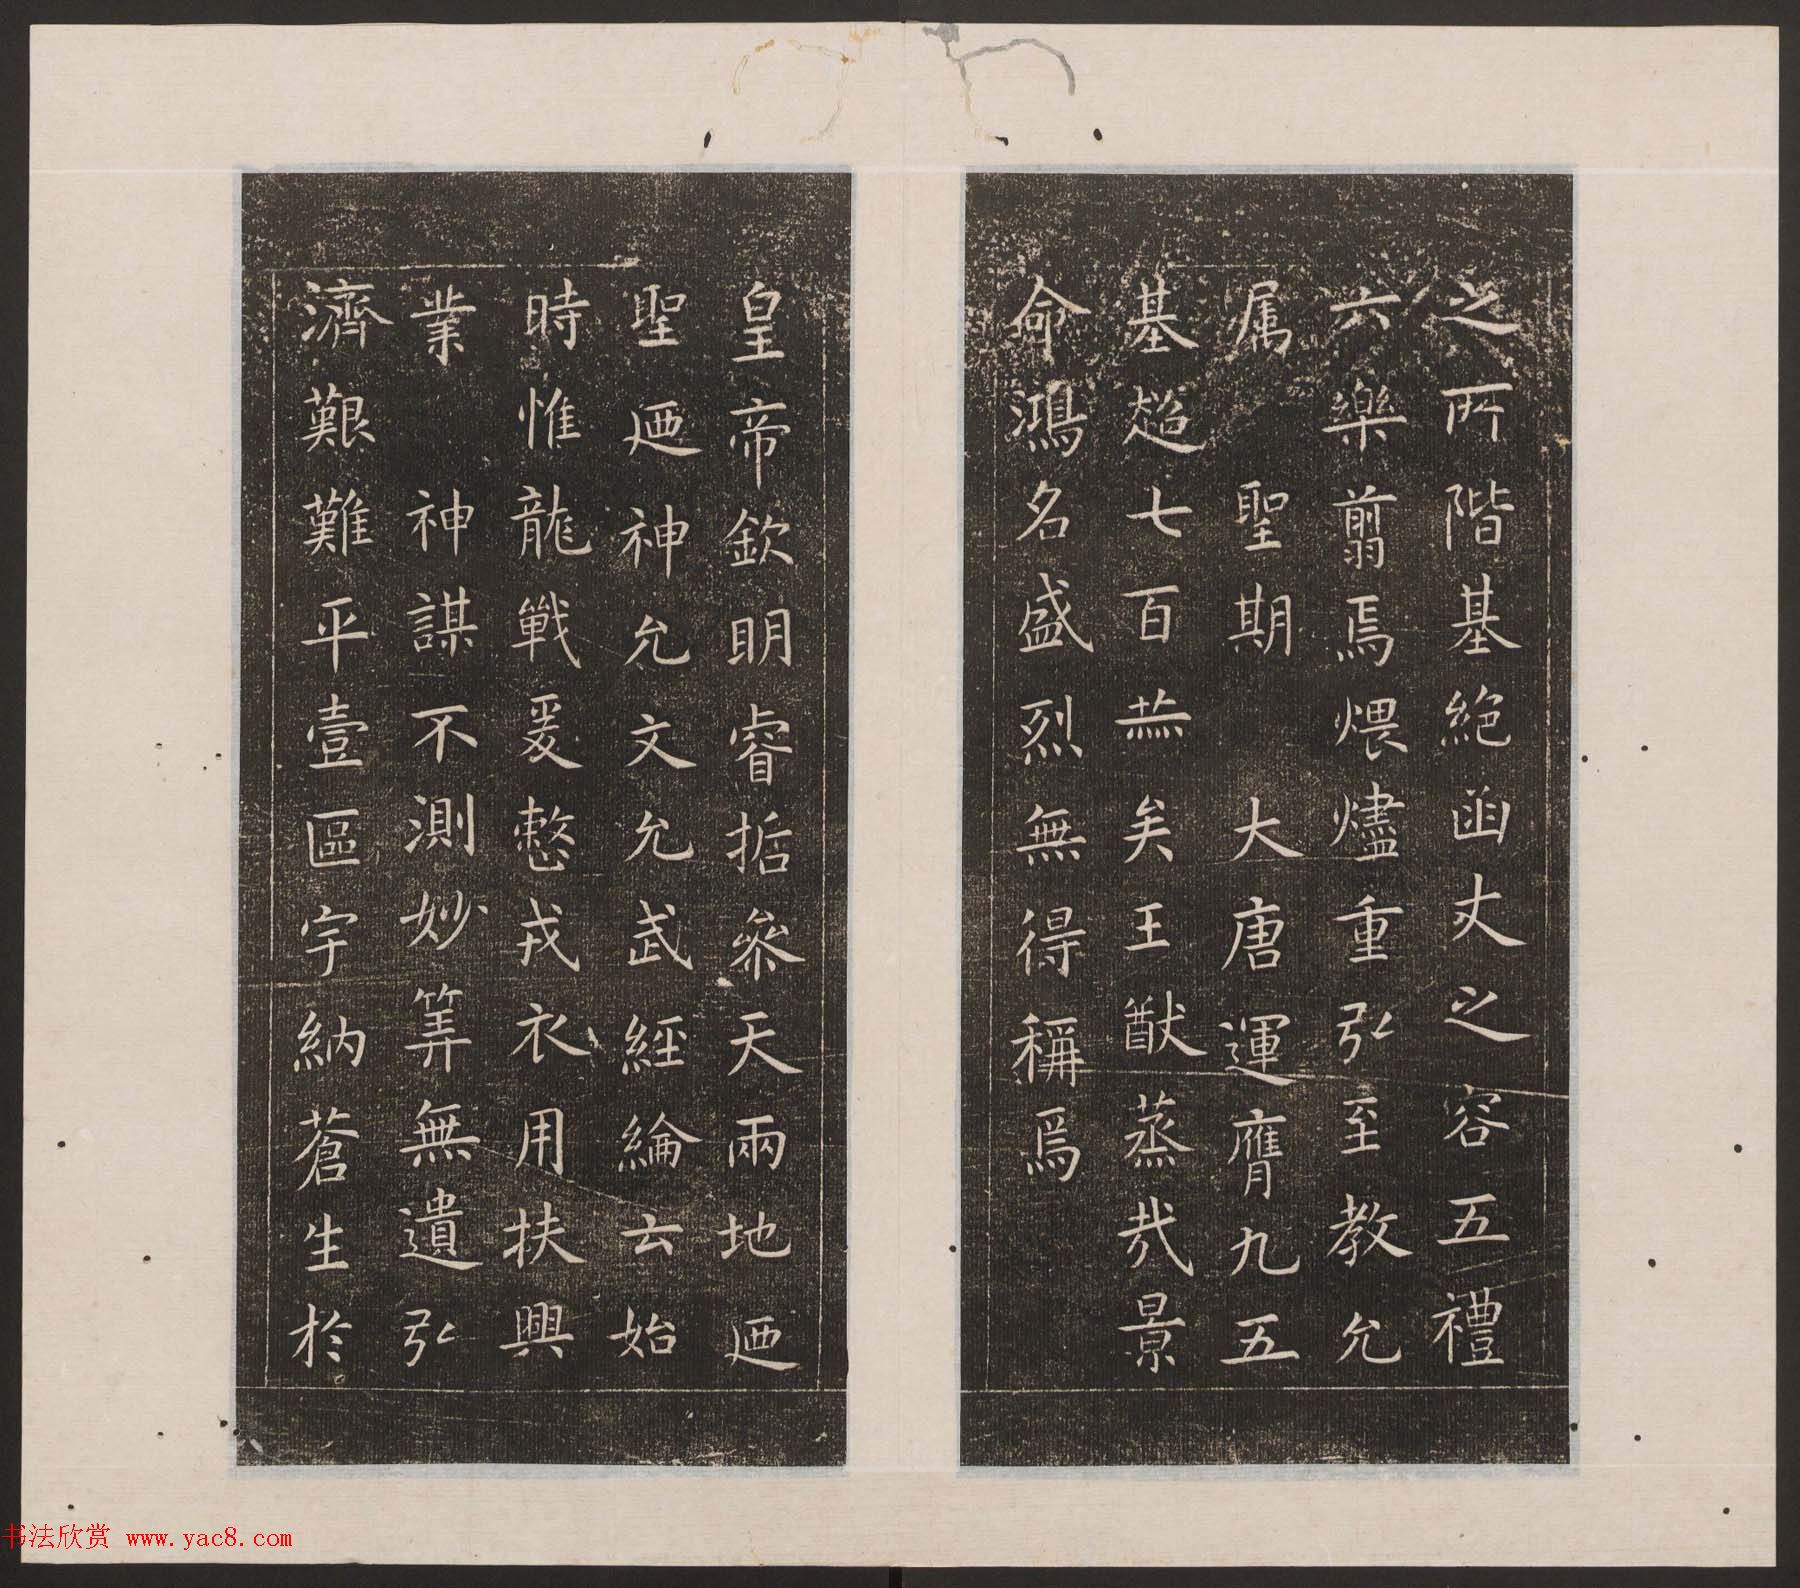 之所階基絕函丈之容五禮
六樂翦焉煨燼重弘至教允
属聖期大唐運膺九五
基超七百赫矣王猷蒸哉景
命鴻名盛烈無得稱焉
皇帝欽明睿哲參天兩地迺
聖迺神允文允武經綸云始
時惟龍戰爰整戎衣用扶興
業神謀不測妙筭無遺弘
濟艱難平壹區宇納蒼生於
书法欣赏 www.yac8.com